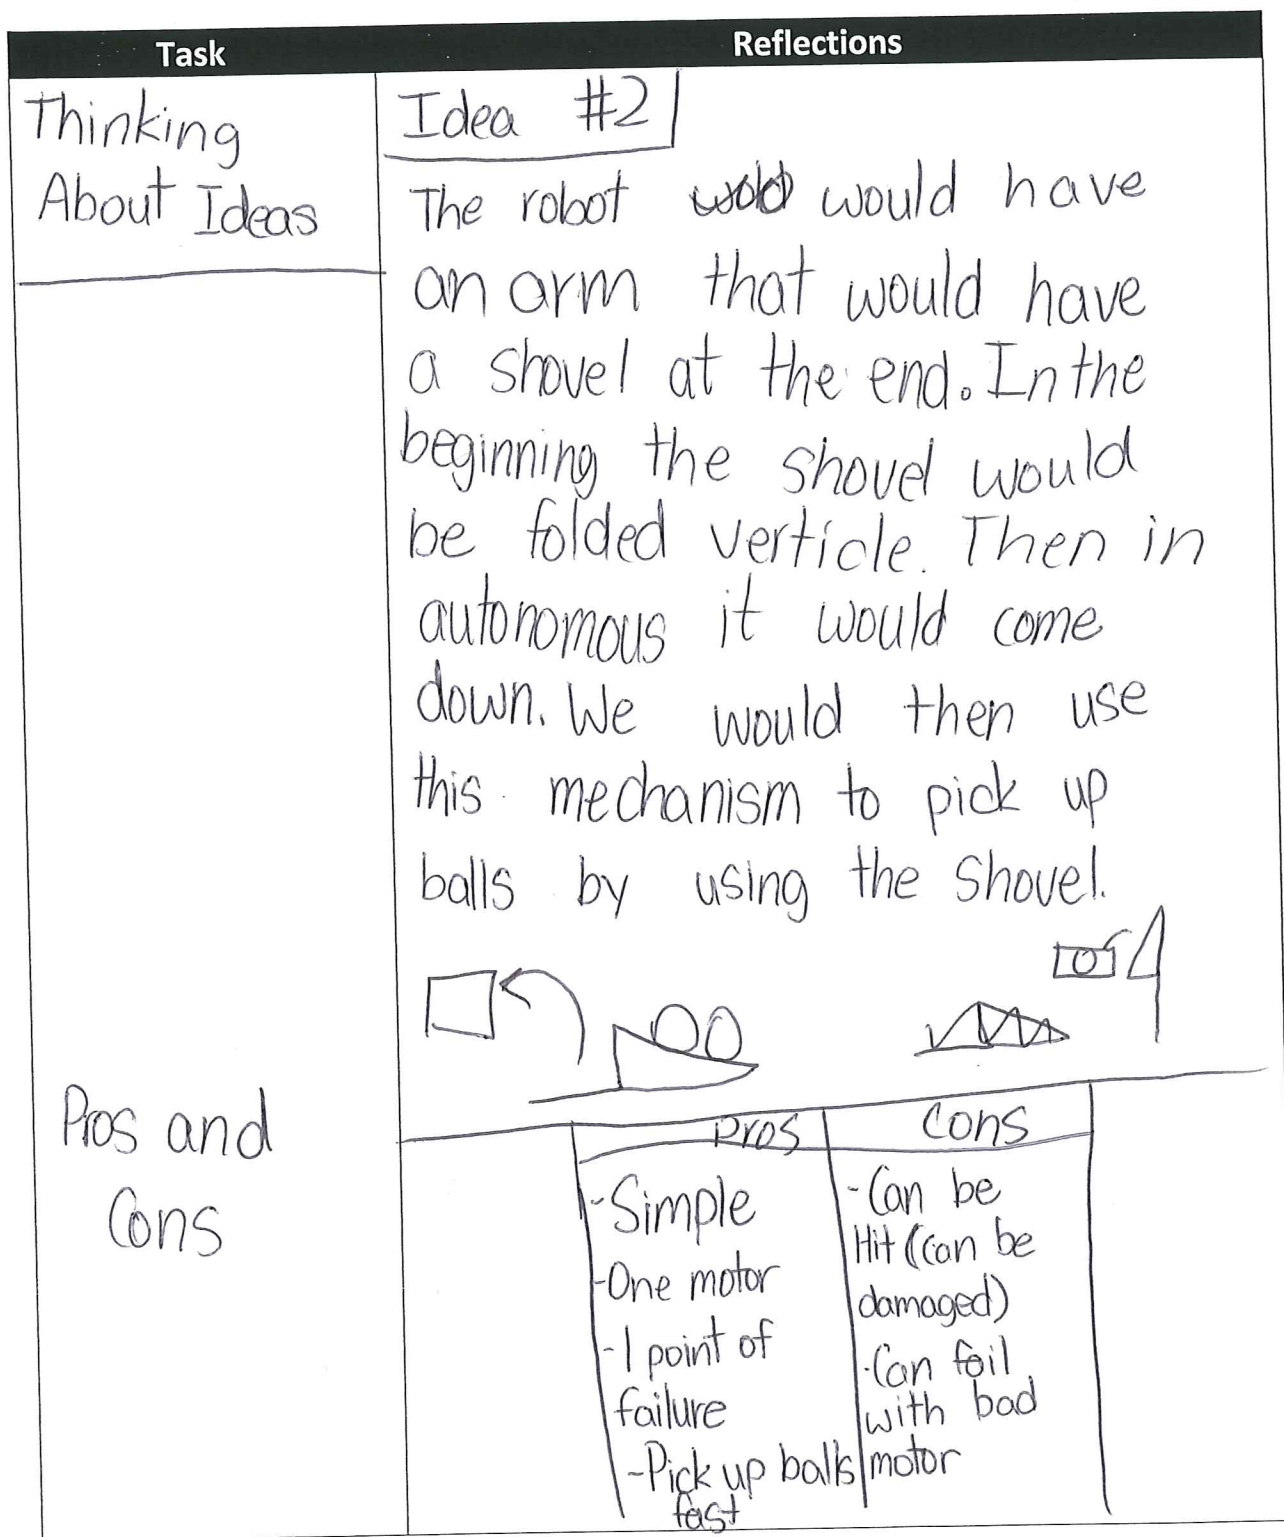 Task
Reflections
Thinking
About Ideas
Idea #2
The robot would have
an arm that would have
a shovel at the end. In the
beginning the shovel would
be folded verticle. Then in
autonomous it would come
down. We would then use
this mechanism to pick up
balls by using the shovel.
Pros and
Cons
Pros
- Simple
- One motor
- 1 point of
failure
- Pick up balls
fast
Cons
- Can be
Hit (can be
damaged)
- Can fail
with bad
motor